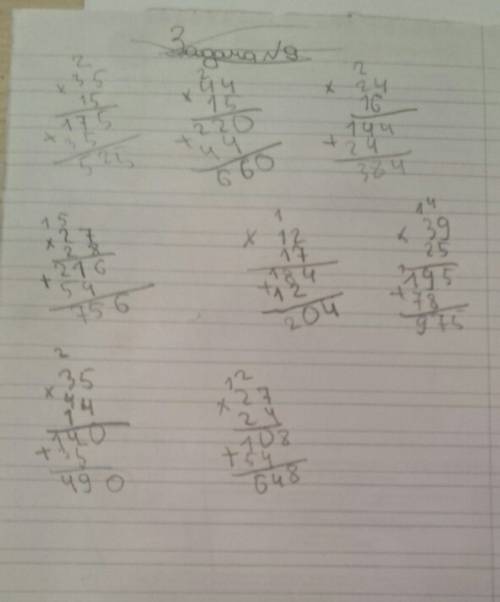 Задача №9
2
×35
15
175
+35
525
2
×44
15
220
+44
660
2
×24
16
144
+24
384
1 5
×27
28
216
+54
756
1
×12
17
184
+12
204
1 4
×39
25
195
+78
975
2
×35
14
140
+35
490
1 2
×27
24
108
+54
648